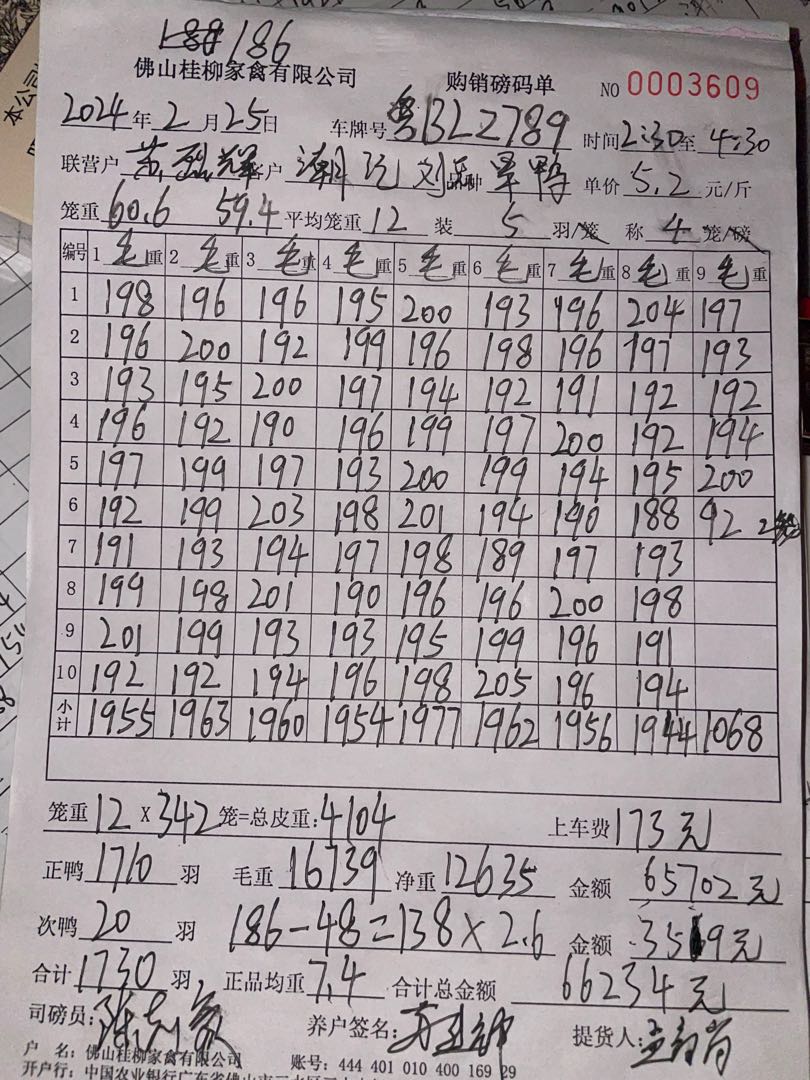 186
佛山桂柳家禽有限公司 购销磅码单 NO 0003609
2024年2月25日 车牌号 粤BLZ789 时间2:30至4:30
联营户 烈辉 客户 潮 刘 品种 鸭 单价5.2元/斤
笼重60.6 59.4 平均笼重12 装5羽/笼 称4笼/磅
编号 1毛重 2毛重 3毛重 4毛重 5毛重 6毛重 7毛重 8毛重 9毛重
1 198 196 196 195 200 193 196 204 197
2 196 200 192 199 196 198 196 197 193
3 193 195 200 197 194 192 191 192 192
4 196 192 190 196 199 197 200 192 194
5 197 199 197 193 200 199 194 195 200
6 192 199 203 198 201 194 190 188 92 2笼
7 191 193 194 197 198 189 197 193
8 199 198 201 190 196 196 200 198
9 201 199 193 193 195 199 196 191
10 192 192 194 196 198 205 196 194
小计 1955 1963 1960 1954 1977 1962 1956 1944 1068
笼重12×342笼=总皮重:4104 上车费173元
正鸭1710羽 毛重16739 净重12635 金额65702元
次鸭20羽 186-48=138×2.6 金额 元
合计1730羽 正品均重7.4 合计总金额66234元
司磅员: 养户签名: 提货人:
户 名:佛山桂柳家禽有限公司 账号:444 401 010 400 169 29
开户行:中国农业银行广东省佛山市三水区
本公司